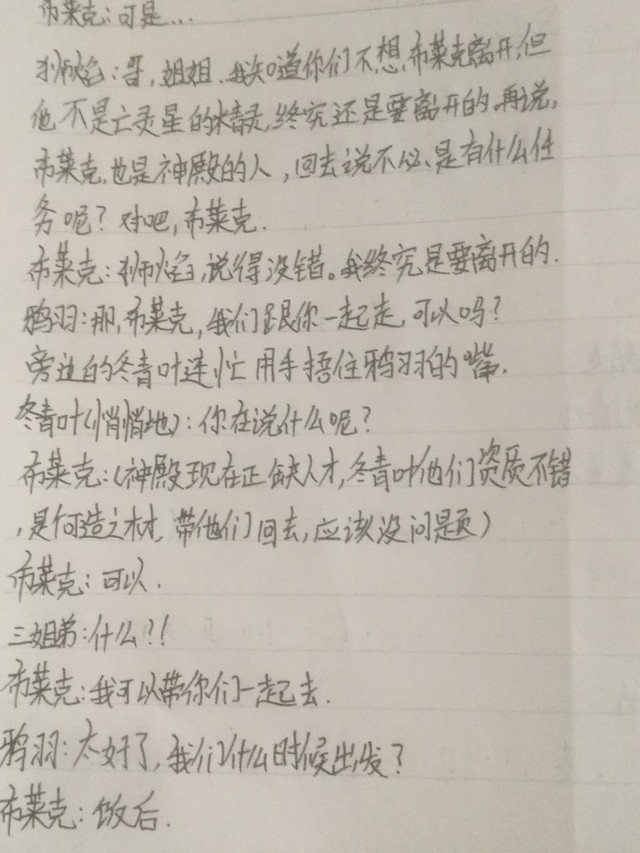 布莱克:可是...
狮焰:哥,姐姐,我知道你们不想布莱克离开,但
他不是亡灵星的精灵,终究还是要离开的。再说,
布莱克,也是神殿的人,回去说不心、是有什么任
务呢?对吧,布莱克.
布莱克:狮焰,说得没错。我终究是要离开的.
鸦羽:那,布莱克,我们跟你一起走,可以吗?
旁边的冬青叶连忙用手捂住鸦羽的嘴.
冬青叶(悄悄地):你在说什么呢?
布莱克:(神殿现在正缺人才,冬青叶他们资质不错
,是何造之材,带他们回去,应该没问题)
布莱克:可以.
三姐弟:什么?!
布莱克:我可以带你们一起去.
鸦羽:太好了,我们什么时候出发?
布莱克:饭后.